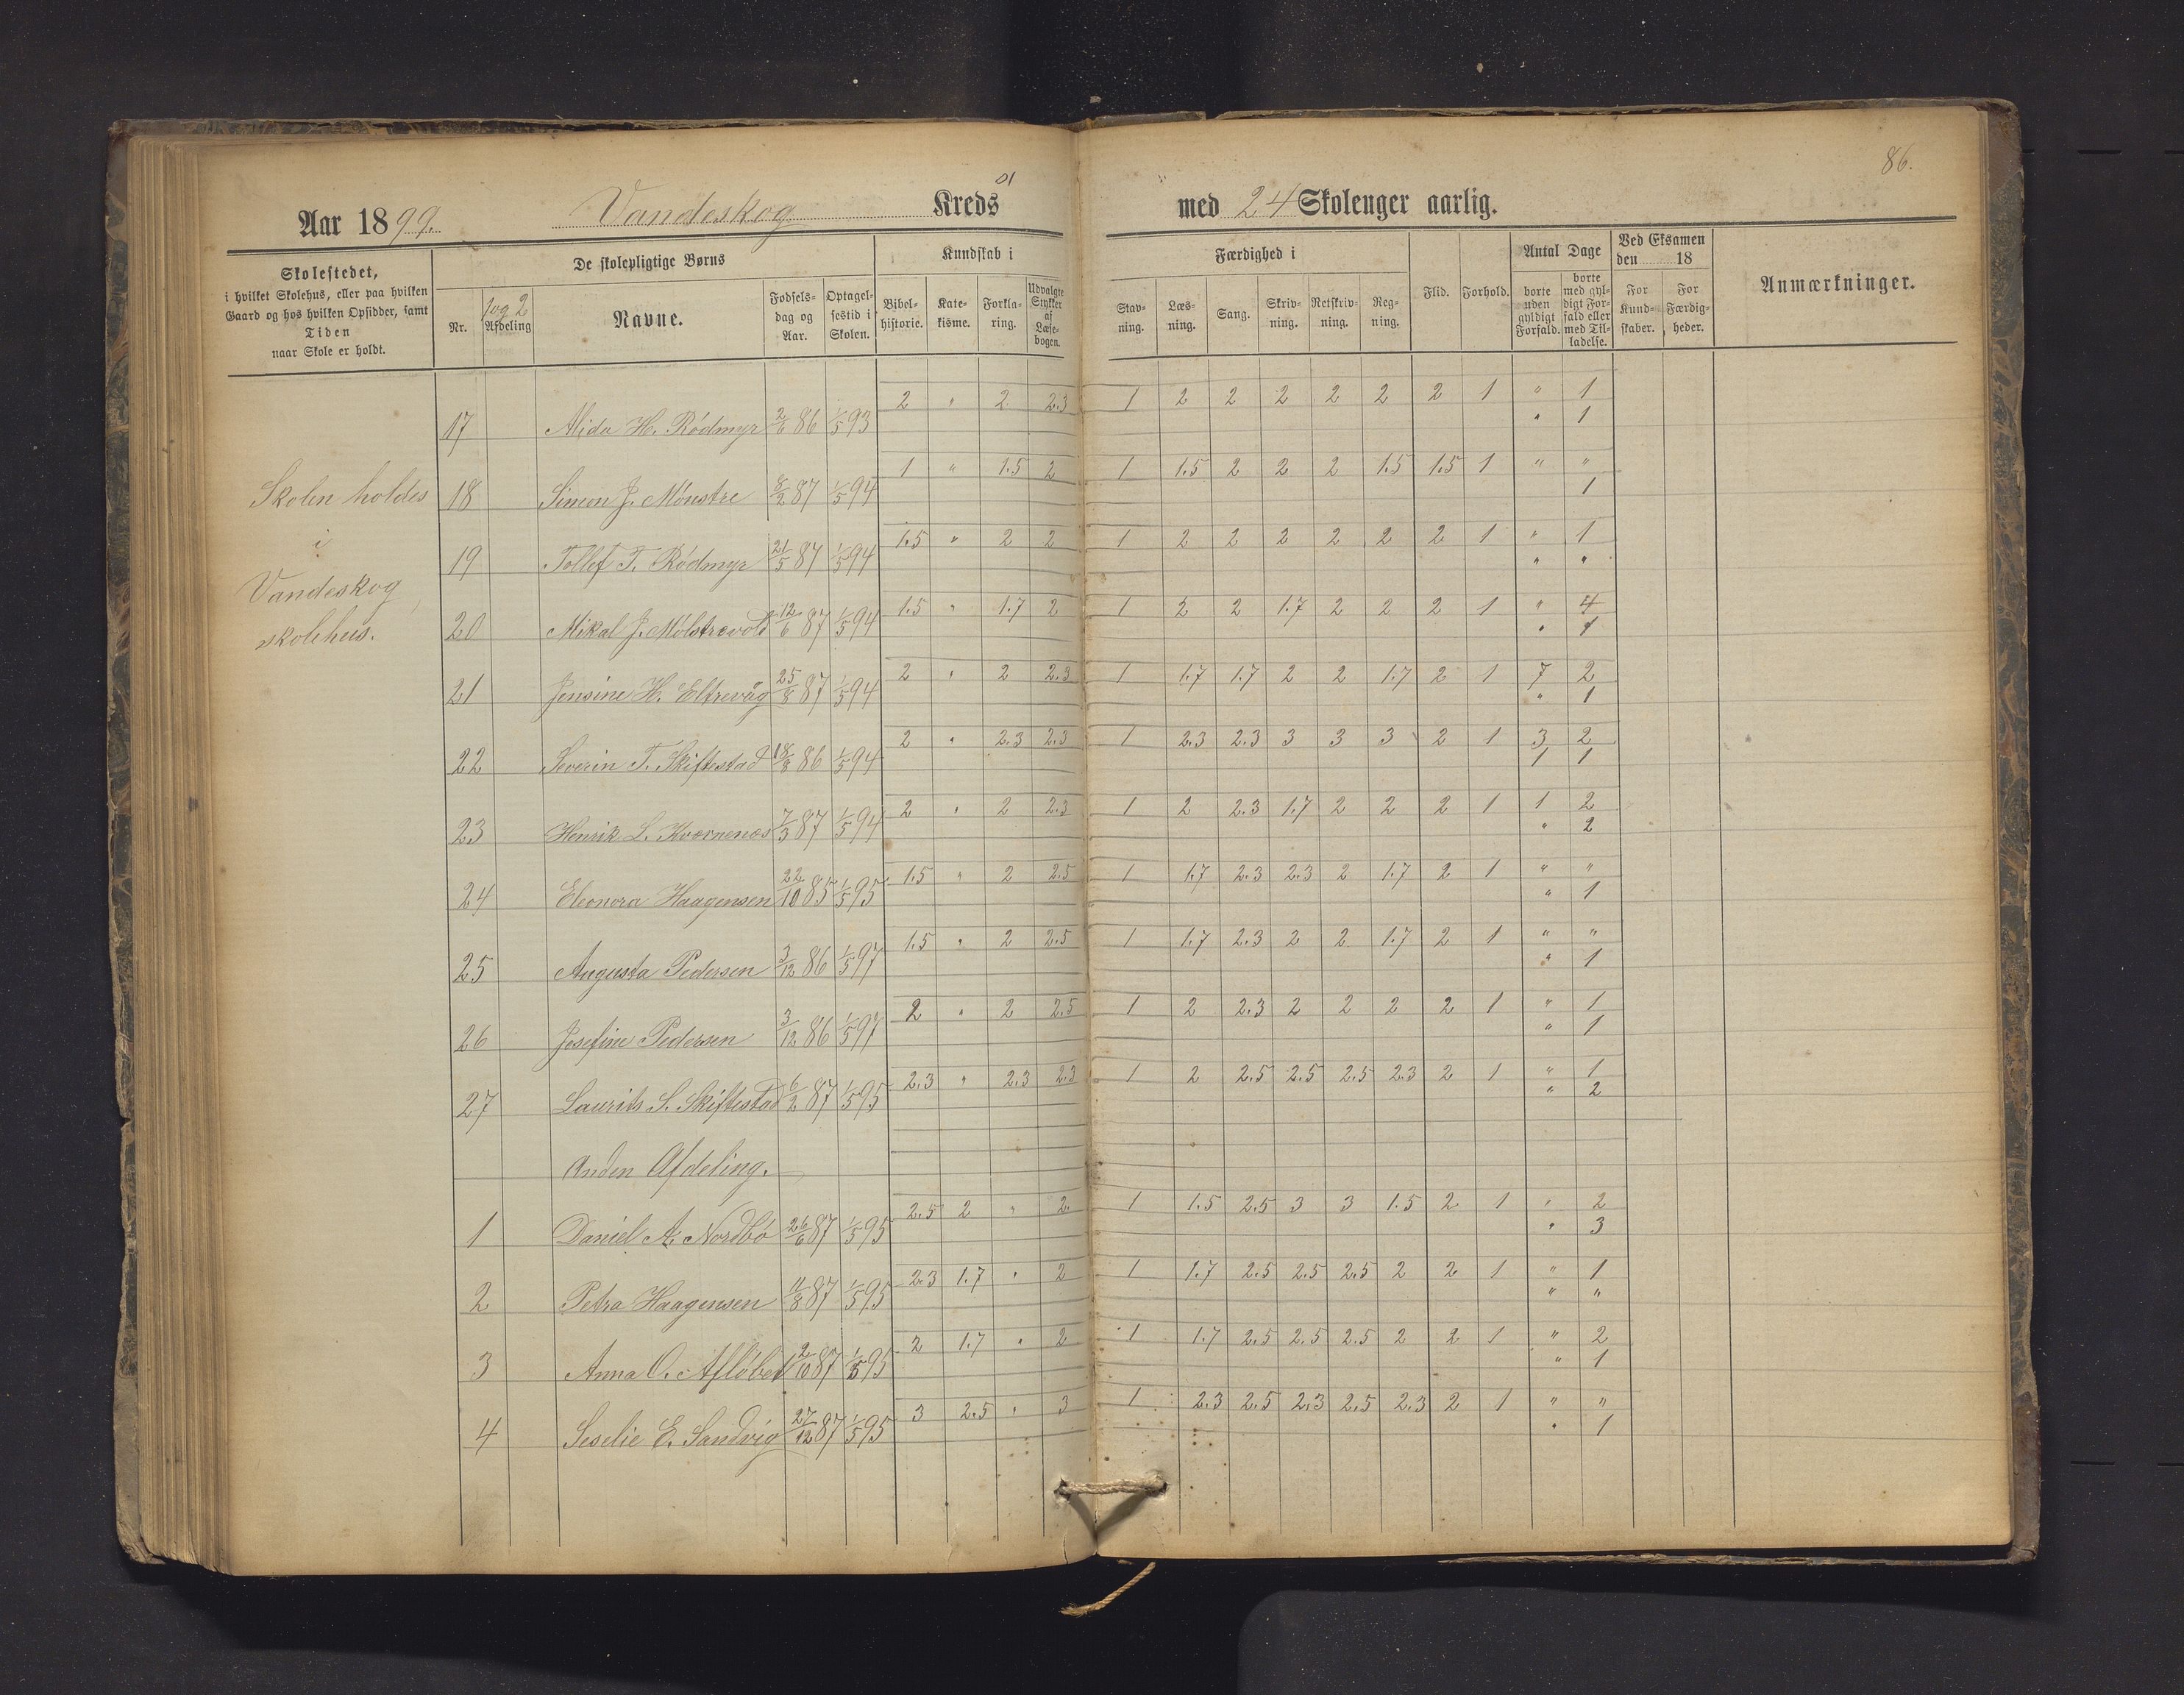 86.
Aar 1899. Vandeskog Kreds
med 24 Skoleuger aarlig.
Skolestedet,
i hvilket Skolehus, eller paa hvilken
Gaard og hos hvilken Opsidder, samt
Tiden
naar Skole er holdt.
De skolepligtige Børns
Nr.
1 og 2
Afdeling
Navne.
Fødsels-
dag og
Aar.
Optagel-
sestid i
Skolen.
Kundskab i
Bibel-
historie.
Kate-
kisme.
Forkla-
ring.
Udvalgte
Stykker
af
Læse-
bogen.
Færdighed i
Stav-
ning.
Læs-
ning.
Sang.
Skriv-
ning.
Retskriv-
ning.
Reg-
ning.
Flid.
Forhold.
Antal Dage
borte
uden
gyldigt
Forfald.
borte
med gyl-
digt For-
fald eller
med Til-
ladelse.
Ved Eksamen
den 18
For
Kund-
skaber.
For
Færdig-
heder.
Anmærkninger.
Skolen holdes
i
Vandeskog
skolehus.
17 Alida H. Rødmyr 2/6 86 1/5 93 2 " 2 2.3 1 2 2 2 2 2 2 1 " 1
" 1
18 Simon J. Mønstre 8/2 87 1/5 94 1 " 1.5 2 1 1.5 2 2 2 1.5 1.5 1 " "
1
19 Tollef T. Rødmyr 21/5 87 1/5 94 1.5 " 2 2 1 2 2 2 2 2 2 1 " 1
" "
20 Mikal J. Mølstrevold 12/6 87 1/5 94 1.5 " 1.7 2 1 2 2 1.7 2 2 2 1 " 4
" 1
21 Jensine H. Eltrevåg 25/8 87 1/5 94 2 " 2 2.3 1 1.7 1.7 2 2 1.7 2 1 7 2
" 1
22 Severin T. Skiftestad 18/8 86 1/5 94 2 " 2.3 2.3 1 2.3 2.3 3 3 3 2 1 3 2
1 1
23 Henrik L. Kvernenæs 7/3 87 1/5 94 2 " 2 2.3 1 2 2.3 1.7 2 2 2 1 1 2
" 2
24 Eleonora Haagensen 22/10 85 1/5 95 1.5 " 2 2.5 1 1.7 2.3 2.3 2 1.7 2 1 " "
" 1
25 Augusta Pedersen 3/12 86 1/5 97 1.5 " 2 2.5 1 1.7 2.3 2 2 1.7 2 1 " "
" 1
26 Josefine Pedersen 3/12 86 1/5 97 2 " 2 2.5 1 2 2.3 2 2 2 2 1 " 1
" 1
27 Laurits S. Skiftestad 6/2 87 1/5 95 2.3 " 2.3 2.3 1 2 2.5 2.5 2.5 2.3 2 1 " 1
" 2
Anden Afdeling.
1 Daniel A. Nordbø 26/6 87 1/5 95 2.5 2 " 2. 1 1.5 2.5 3 3 1.5 2 1 " 2
" 3
2 Petra Haagensen 11/8 87 1/5 95 2.3 1.7 " 2 1 1.7 2.5 2.5 2.5 2 2 1 " 1
" "
3 Anna O. 2/10 87 1/5 95 2 1.7 " 2 1 1.7 2.5 2.5 2.5 2 2 1 " 2
" 1
4 Seselie E. Sandvig 27/12 87 1/5 95 3 2.5 " 3 1 2.3 2.5 2.3 2.5 2.3 2 1 " "
" 1